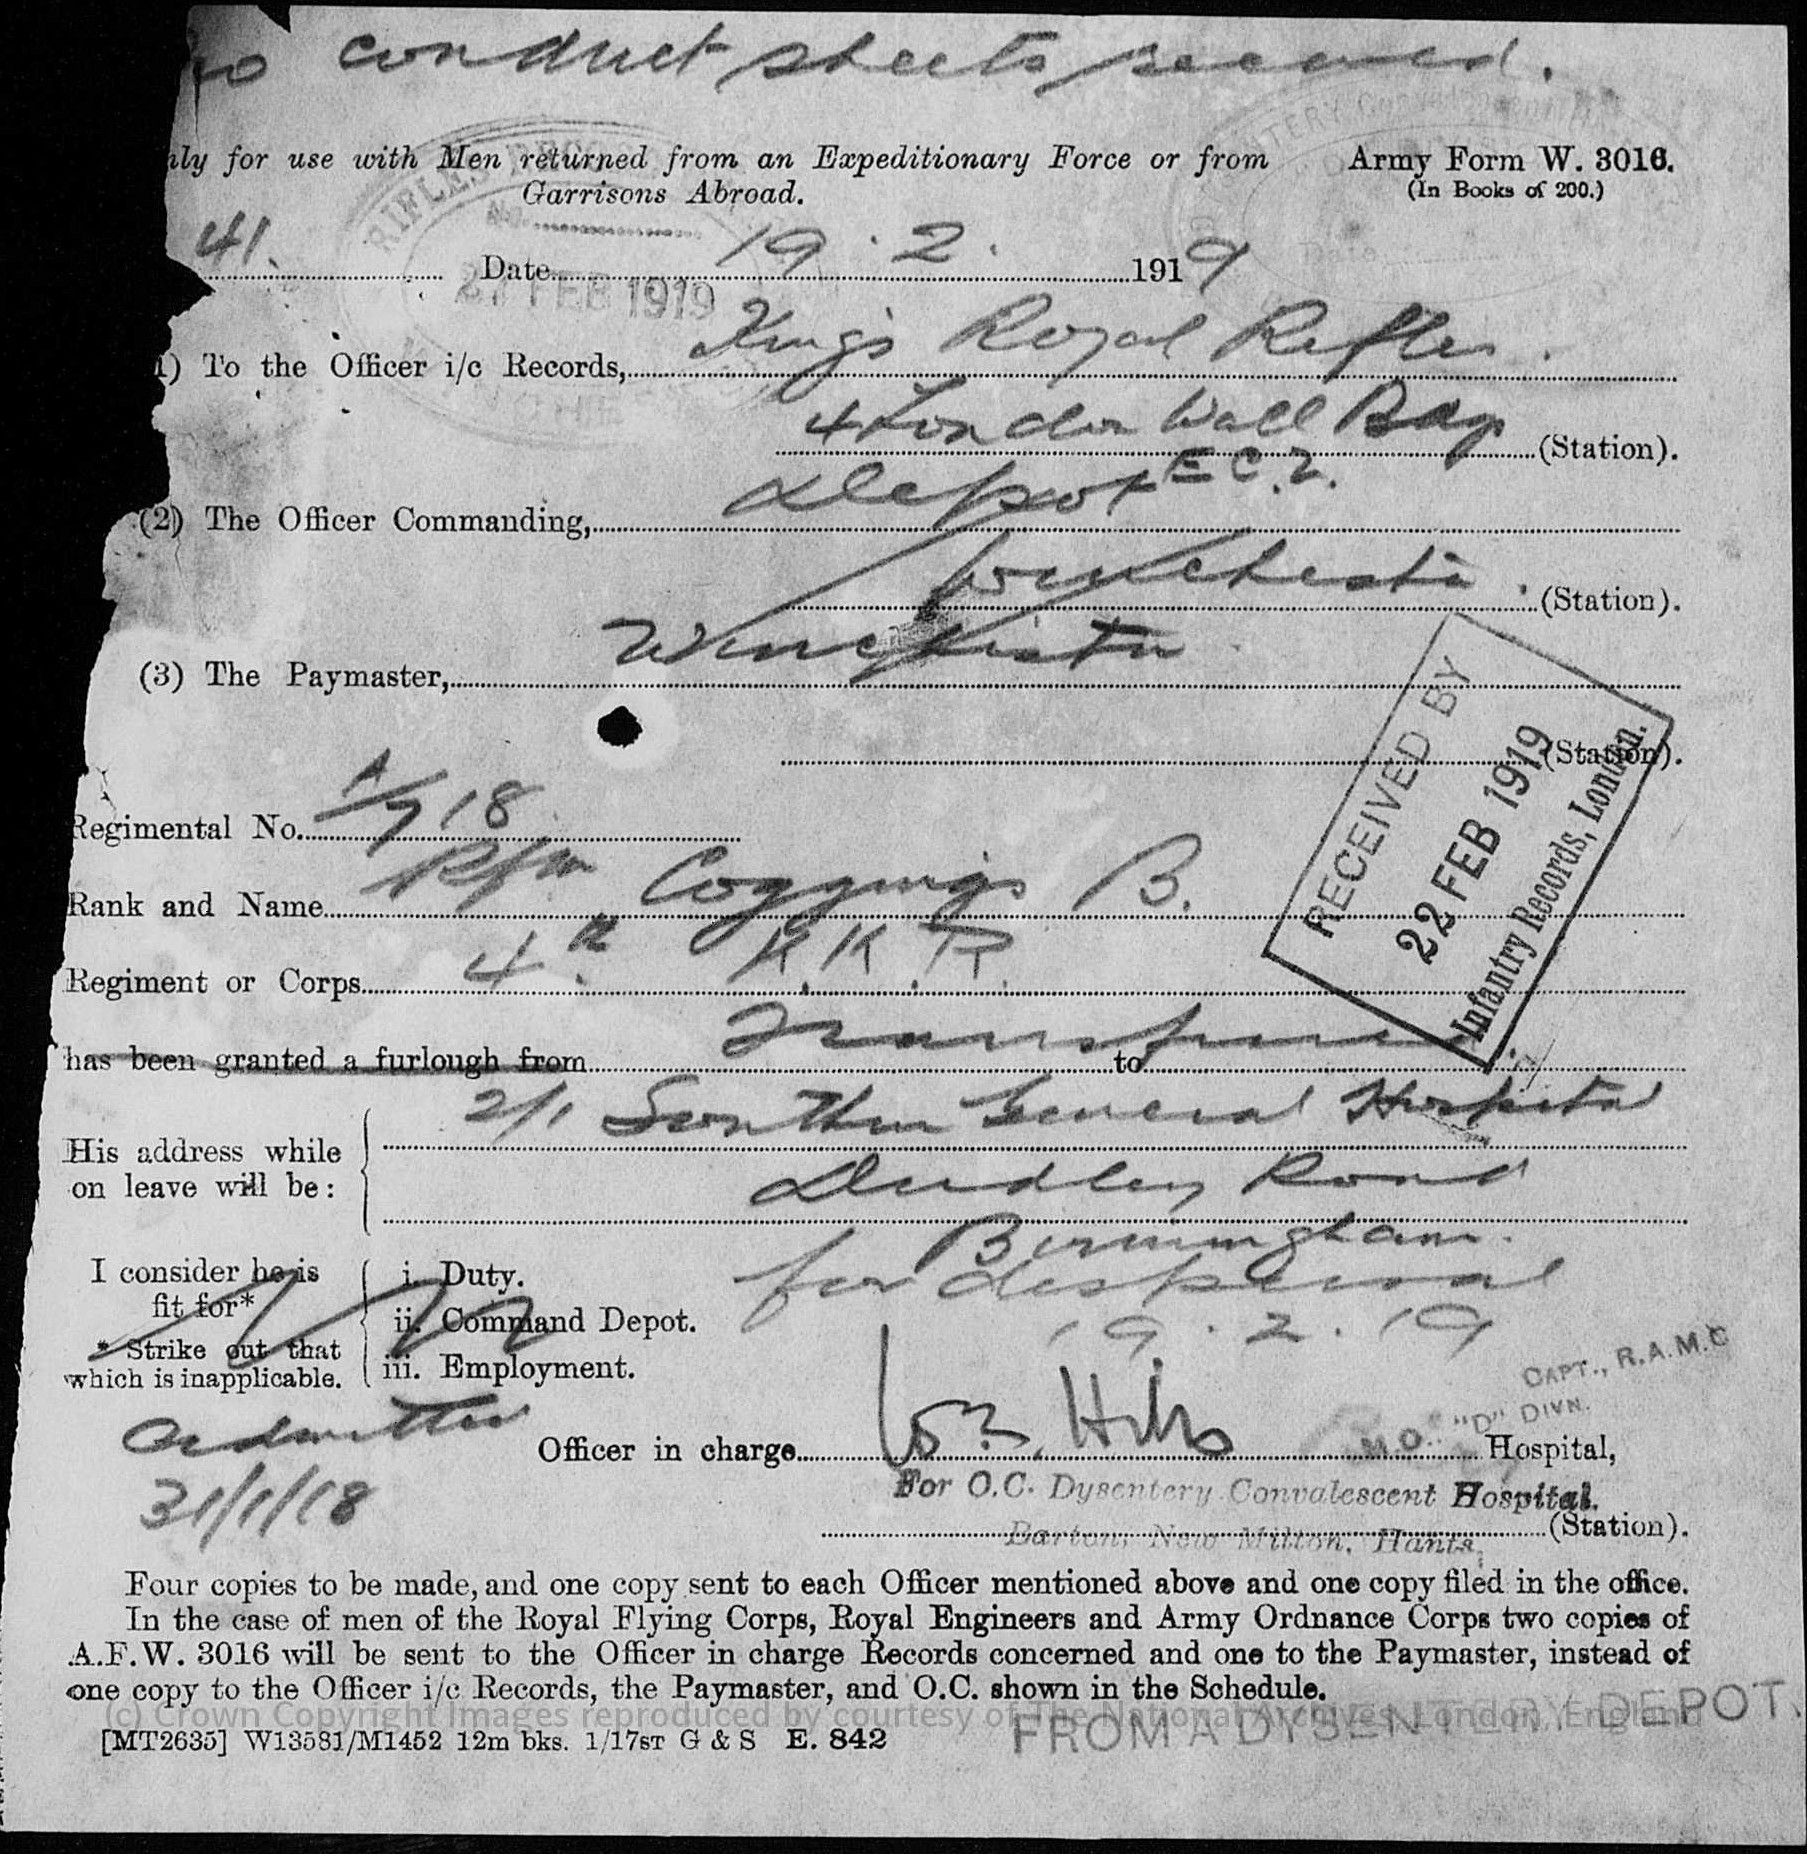 no conduct sheets received.
nly for use with Men returned from an Expeditionary Force or from
Garrisons Abroad.
Army Form W. 3016.
(In Books of 200.)
RIFLE RECO
41. Date 19.2. 1919
21 FEB 1919
1) To the Officer i/c Records, King's Royal Rifles.
4 London Wall Bdgs (Station).
E C.2.
(2) The Officer Commanding, Depot
Winchester. (Station).
(3) The Paymaster, Winchester
(Station).
RECEIVED BY
22 FEB 1919
Infantry Records, London.
Regimental No. A/718
Rank and Name Rfn Coggings B.
Regiment or Corps 4th K.R.R.
has been granted a furlough from Transferred to
2/1 Southern General Hospital
His address while
on leave will be:
Dudley Road
Birmingham.
for dispersal
19.2.19
I consider he is
fit for*
* Strike out that
which is inapplicable.
i. Duty.
ii. Command Depot.
iii. Employment.
admitted
31/1/18
CAPT., R.A.M.C
M.O. "D" DIVN.
Officer in charge Hills Hospital,
For O.C. Dysentery Convalescent Hospital.
Barton, New Milton, Hants. (Station).
Four copies to be made, and one copy sent to each Officer mentioned above and one copy filed in the office.
In the case of men of the Royal Flying Corps, Royal Engineers and Army Ordnance Corps two copies of
A.F.W. 3016 will be sent to the Officer in charge Records concerned and one to the Paymaster, instead of
one copy to the Officer i/c Records, the Paymaster, and O.C. shown in the Schedule.
(c) Crown Copyright Images reproduced by courtesy of The National Archives, London, England
FROM A DYSENTERY DEPOT.
[MT2635] W13581/M1452 12m bks. 1/17ST G & S E. 842